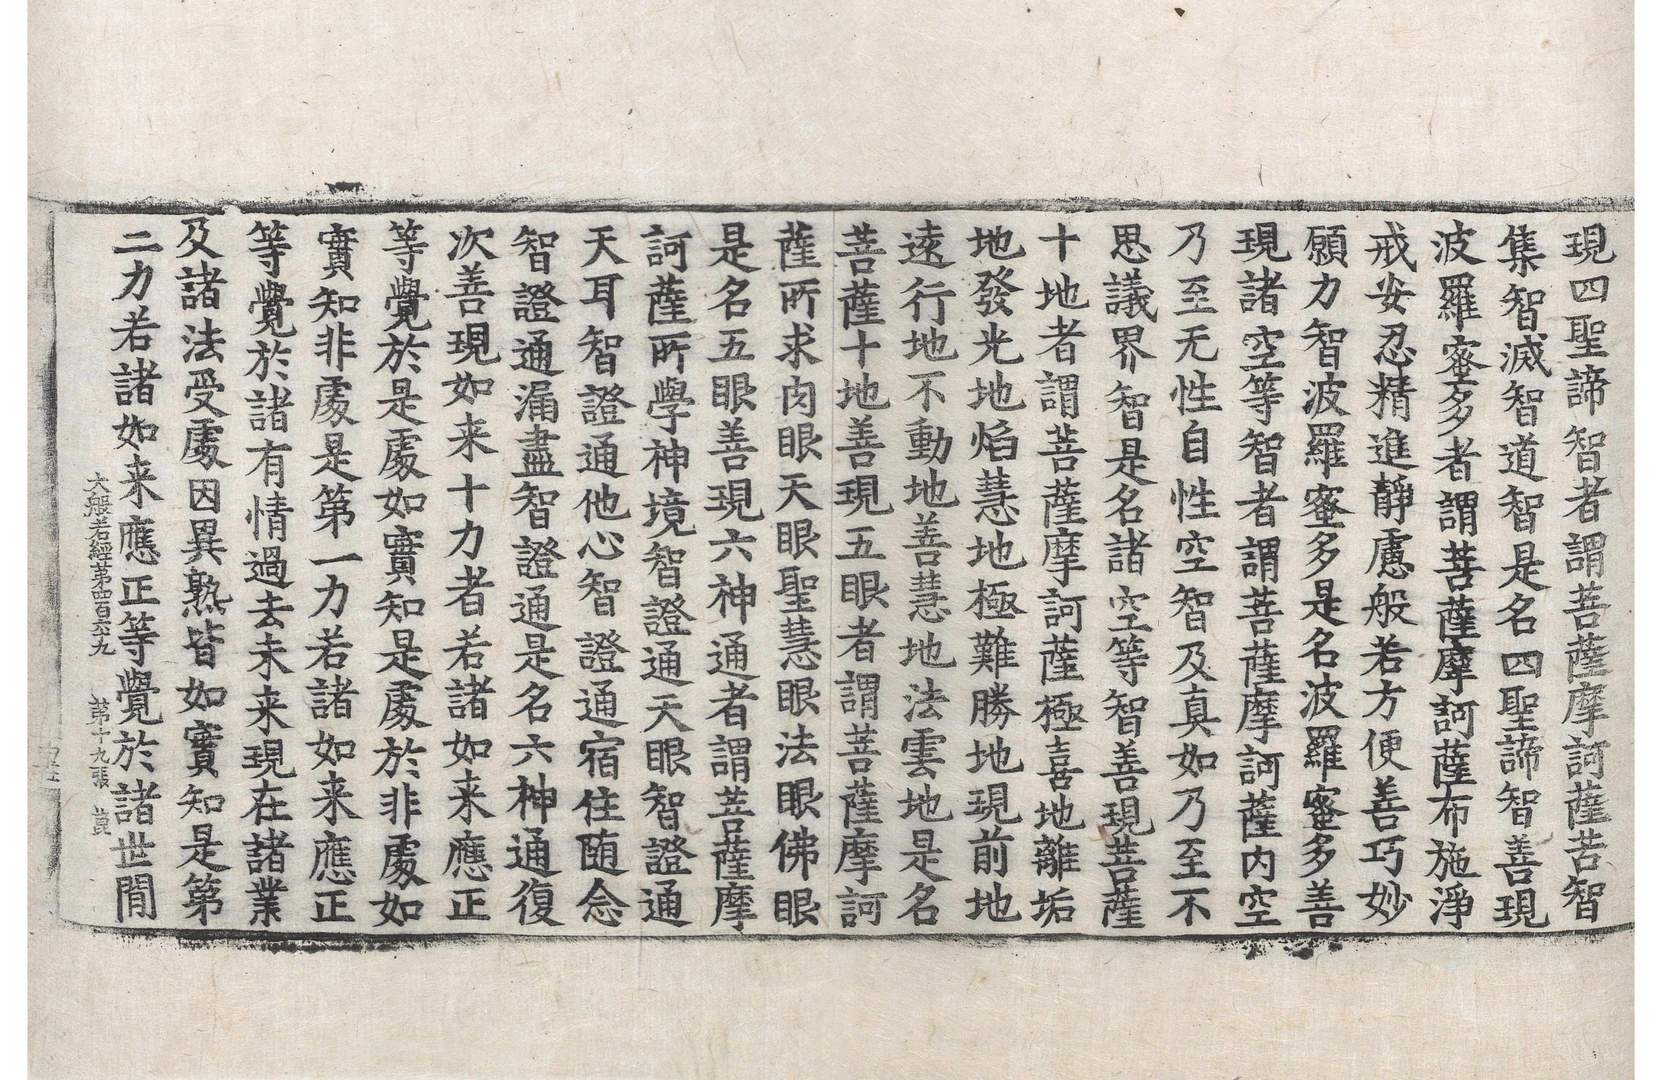 現四聖諦智者謂菩薩摩訶薩苦智
集智滅智道智是名四聖諦智善現
波羅蜜多者謂菩薩摩訶薩布施淨
戒安忍精進靜慮般若方便善巧妙
願力智波羅蜜多是名波羅蜜多善
現諸空等智者謂菩薩摩訶薩内空
乃至无性自性空智及真如乃至不
思議界智是名諸空等智善現菩薩
十地者謂菩薩摩訶薩極喜地離垢
地發光地焰慧地極難勝地現前地
遠行地不動地善慧地法雲地是名
菩薩十地善現五眼者謂菩薩摩訶
薩所求肉眼天眼聖慧眼法眼佛眼
是名五眼善現六神通者謂菩薩摩
訶薩所學神境智證通天眼智證通
天耳智證通他心智證通宿住随念
智證通漏盡智證通是名六神通復
次善現如来十力者若諸如来應正
等覺於是處如實知是處於非處如
實知非處是第一力若諸如来應正
等覺於諸有情過去未来現在諸業
及諸法受處因異熟皆如實知是第
二力若諸如来應正等覺於諸世間
大般若經第四百六九 第十九張 莨